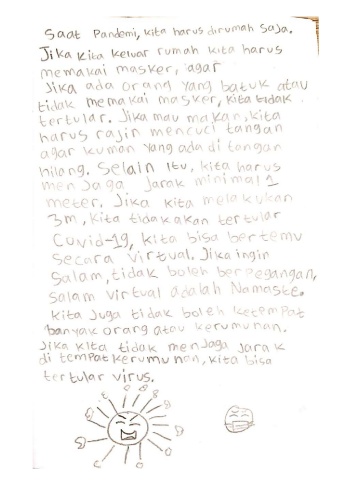 Saat Pandemi, kita harus dirumah saja.
Jika kita keluar rumah kita harus
memakai masker, agar
Jika ada orang yang batuk atau
tidak memakai masker, kita tidak
tertular. Jika mau makan, kita
harus rajin mencuci tangan
agar kuman yang ada di tangan
hilang. Selain itu, kita harus
menjaga jarak minimal 1
meter. Jika kita melakukan
3m, kita tidak akan tertular
Covid-19, kita bisa bertemu
secara virtual. Jika ingin
salam, tidak boleh berpegangan,
salam virtual adalah Namaste.
kita juga tidak boleh ketempat
banyak orang atau kerumunan.
Jika kita tidak menjaga jarak
di tempat kerumunan, kita bisa
tertular virus.